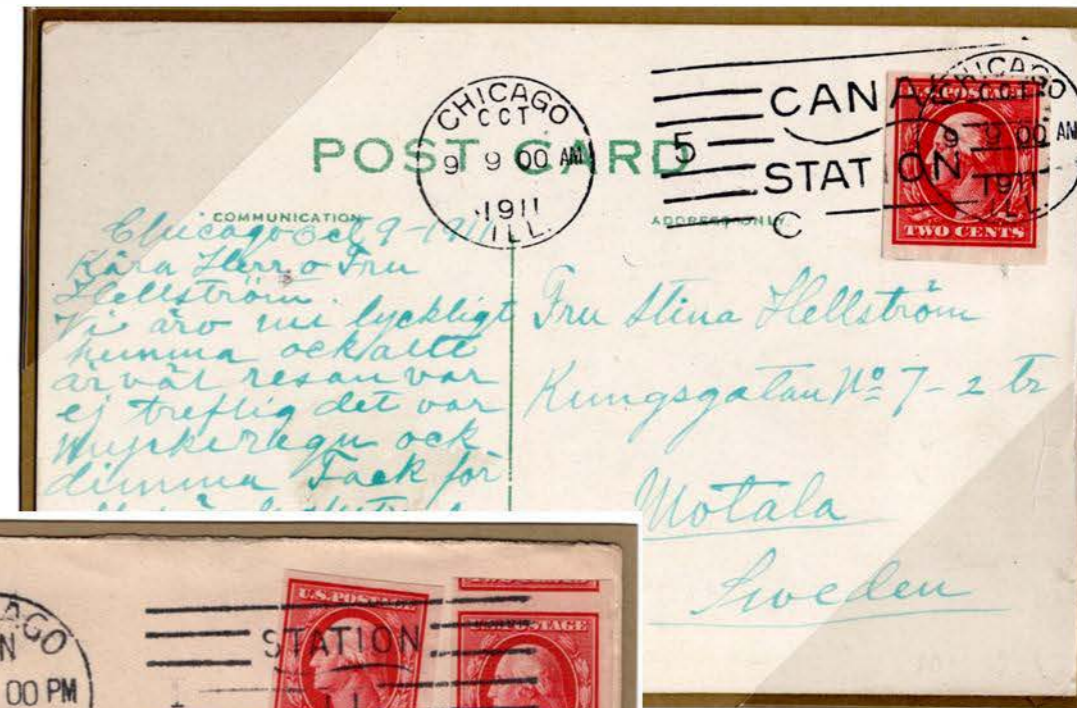 POST CARD
CHICAGO
OCT
9 9 00 AM
1911
ILL.
5
CANAL
STATION
C
CHICAGO
OCT
9 9 00 AM
1911
ILL.
U.S. POSTAGE
TWO CENTS
COMMUNICATION
ADDRESS ONLY
Chicago Oct 9-1911
Kära Herr o Fru
Hellström.
Vi äro nu lyckligt
hemma ock allt
är väl resan var
ej treflig det var
Mycke regn ock
dimma Tack för
Fru Stina Hellström
Kungsgatan No 7-2 tr
Motala
Sweden
00 PM
STATION
U.S. POSTAGE
POSTAGE